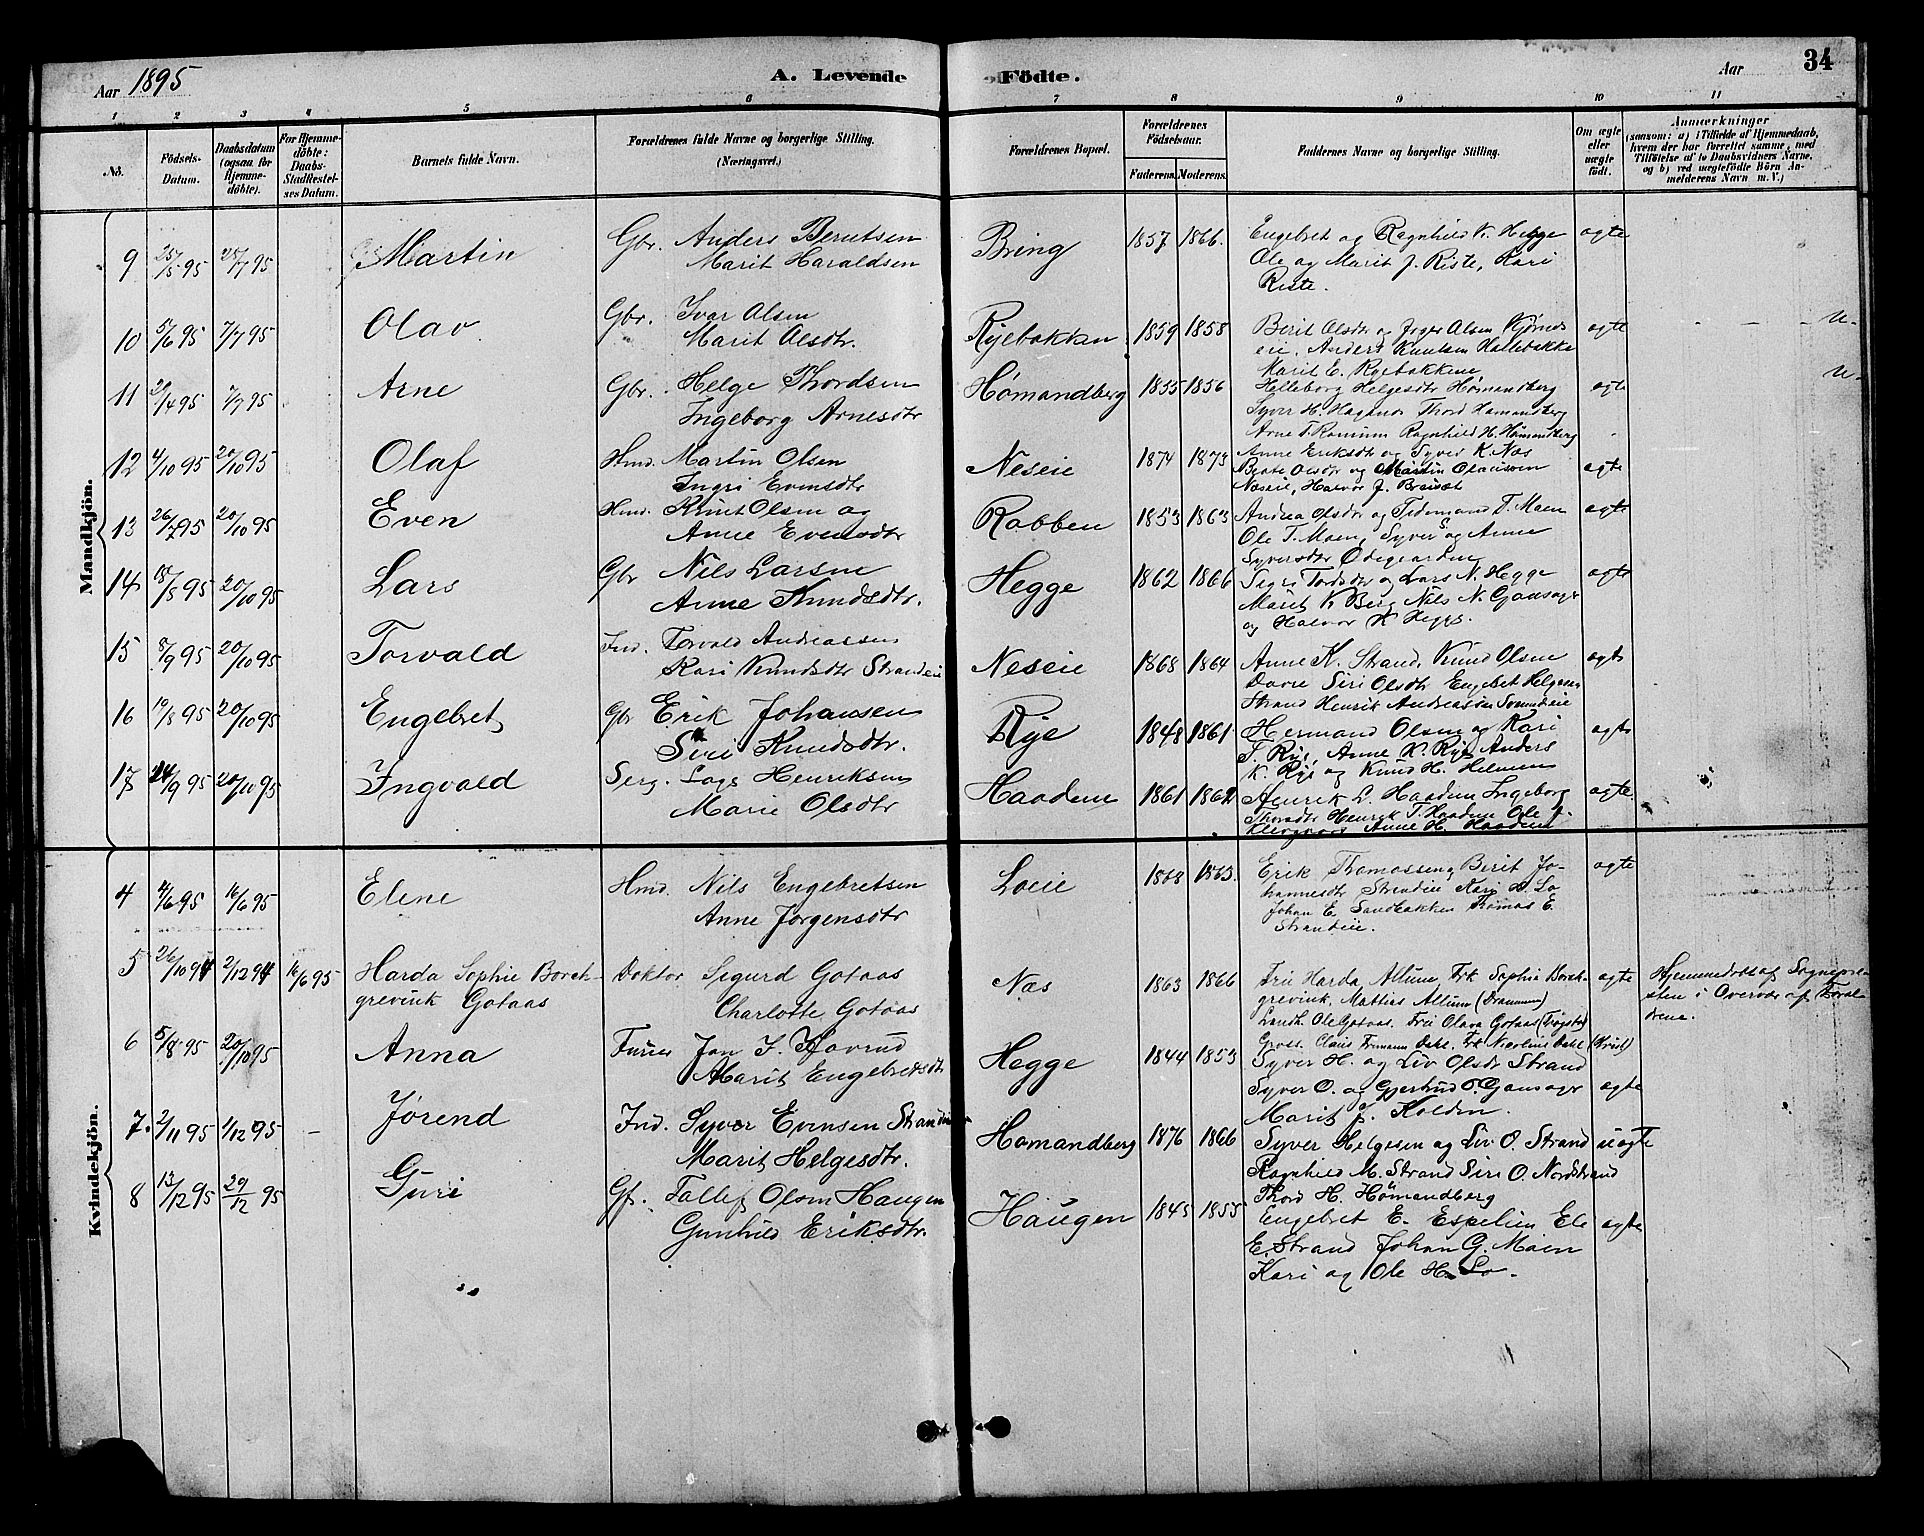 Aar 1895
A. Levende
Födte.
Aar
34
1 2 3 4 5 6 7 8 9 10 11
No.
Födsels-
Datum.
Daabsdatum
(ogsaa for
Hjemme-
döbte).
For Hjemme-
döbte:
Daabs-
Stadfæstel-
ses Datum.
Barnets fulde Navn.
Forældrenes fulde Navne og borgerlige Stilling.
(Næringsvei.)
Forældrenes Bopæl.
Forældrenes
Födselsaar.
Faderens. Moderens.
Faddernes Navne og borgerlige Stilling.
Om ægte
eller
uægte
født.
Anmærkninger
(saasom: a) i Tilfælde af Hjemmedaab,
hvem der har forrettet samme, med
Tilföielse af to Daabsvidners Navne,
og b) ved uægtefödte Börn An-
melderens Navn m. V.)
Mandkjön.
9 25/5 95 28/7 95 Martin Gbr. Anders Berntsen
Marit Haraldsen
Bring 1857 1866 Engebret og Ragnhild K. Hegge
Ole og Marit J. Riste, Kari
Riste.
ægte
10 5/6 95 7/7 95 Olav Gbr. Ivar Olsen
Marit Olsdtr.
Ryebakken 1859 1858 Berit Olsdtr og Olsen
eie, Anders Knutsen Hallebakke
Marit E. Ryebakkene
ægte
11 2/4 95 7/7 95 Arne Gbr. Helge Thordsen
Ingeborg Arnesdtr
Hömandberg 1855 1856 Helleborg Helgesdtr Hömandberg
Syver H. Thord Hömandberg
Arne T. Ragnhild H. Hömandberg
ægte
12 4/10 95 20/10 95 Olaf Hmd. Martin Olsen
Ingri Evensdtr
Neseie 1874 1873 Anne Eriksdtr og Syver K. Næs
Beate Olsdtr og Martin Olaussen
Næseie, Halvor J.
ægte
13 26/7 95 20/10 95 Even Hmd. Knut Olsen og
Anne Evensdtr
Robben 1853 1863 Andrea Olsdtr og Tidemand T. Moen
Ole T. Moen, Syver S. og Anne
Syversdtr Ødegaarden
ægte
14 18/5 95 20/10 95 Lars Gbr Nils Larsen
Anne Knudsdtr.
Hegge 1862 1866 Sigri Tordsdtr og Lars N. Hegge
Marit K. Berg Nils N. Gansager
og Halvor K Hegge.
ægte
15 8/9 95 20/10 95 Torvald Ind. Torvald Andreassen
Kari Knudsdtr Strandeie
Neseie 1868 1864 Anne K. Strand, Knud Olsen
Dovre Siri Olsdtr Engebret Helgesen
Strand Henrik Andreassen
ægte
16 19/8 95 20/10 95 Engebret Gbr Erik Johansen
Siri Knudsdtr.
Rye 1848 1861 Hermand Olsen og Kari
T. Rye, Anne K. Rye Anders
K. Rye og Knud H. Helmen
ægte
17 24/9 95 20/10 95 Ingvald Serg. Lage Henriksen
Marie Olsdtr
Haadem 1861 1862 Henrik L. Haadem Ingeborg
Thorsdtr Henrik T. Haadem Ole J.
Anne H. Haadem
ægte
Kvindekjön.
4 4/6 95 16/6 95 Elene Hmd. Nils Engebretsen
Anne Jörgensdtr
Loeie 1868 1863. Erik Thomassen, Berit Jo-
hannesdtr Strandeie Kari H. Lo
Johan E. Sandbakken Thomas E.
Strandeie.
ægte
5 26/10 94 2/12 94 16/6 95 Harda Sophie Borch-
grevink Gotaas
Doktor Sigurd Gotaas
Charlotte Gotaas
Næs 1863 1866 Frue Harda Allum, Frk Sophie Borch-
grevink, Mattias Allum (Drammen)
Landh. Ole Gotaas. Frue Olava Gotaas (Trøgstad)
Gross. Claus Dahl. Frk Nicoline Dahl
ægte Hjemmedöbt af Sognepre-
sten i Overvær af Foræl-
drene.
6 5/8 95 20/10 95 Anna Furier Jon J. Hovrud
Marit Engebretsdtr
Hegge 1844 1853 Syver H. og Liv Olsdtr Strand
Syver O. og Gjertrud O. Gansager
Marit J. Kolden.
ægte
7. 2/11 95 1/12 95 Jørend Ind. Syver Evensen Strandeie
Marit Helgesdtr.
Hömandberg 1876 1866 Syver Helgesen og Liv O. Strand
Ragnhild M. Strand Siri O. Nordstrand
Thord H. Hömandberg
uægte
8 13/12 95 29/12 95 Guri Gf. Tollef Olsen Haugen
Gunhild Eriksdtr.
Haugen 1845 1855 Engebret E. Espelien Ele
E. Strand Johan G. Moen
Kari og Ole H. Lo.
ægte